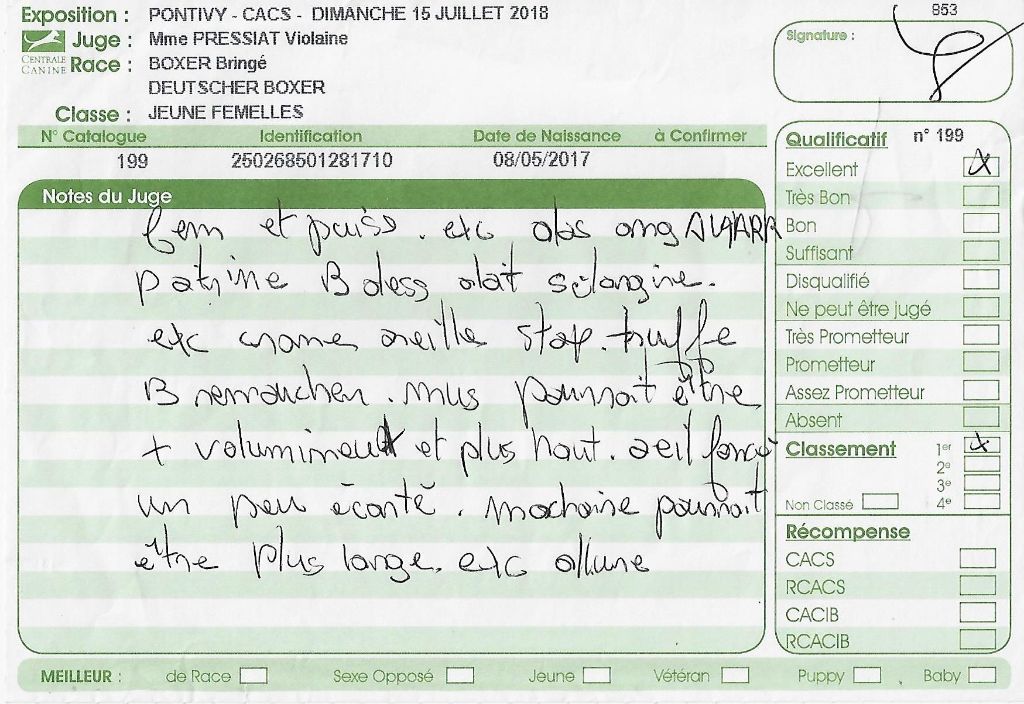 Exposition : PONTIVY - CACS - DIMANCHE 15 JUILLET 2018
853
Juge : Mme PRESSIAT Violaine
Signature :
CENTRALE CANINE
Race : BOXER Bringé
DEUTSCHER BOXER
Classe : JEUNE FEMELLES
N° Catalogue Identification Date de Naissance à Confirmer
199 250268501281710 08/05/2017
Notes du Juge
fem et puiss. exc dos ang AV/ARR
poitrine B dess droit
exc crane oreilles stop. truffe
B remoucher. mus pourrait être
+ volumineux et plus haut. oeil foncé
un peu écarté. machoire pourrait
être plus large. exc allure
Qualificatif n° 199
Excellent X
Très Bon
Bon
Suffisant
Disqualifié
Ne peut être jugé
Très Prometteur
Prometteur
Assez Prometteur
Absent
Classement 1er X
2e
3e
Non Classé 4e
Récompense
CACS
RCACS
CACIB
RCACIB
MEILLEUR : de Race Sexe Opposé Jeune Vétéran Puppy Baby